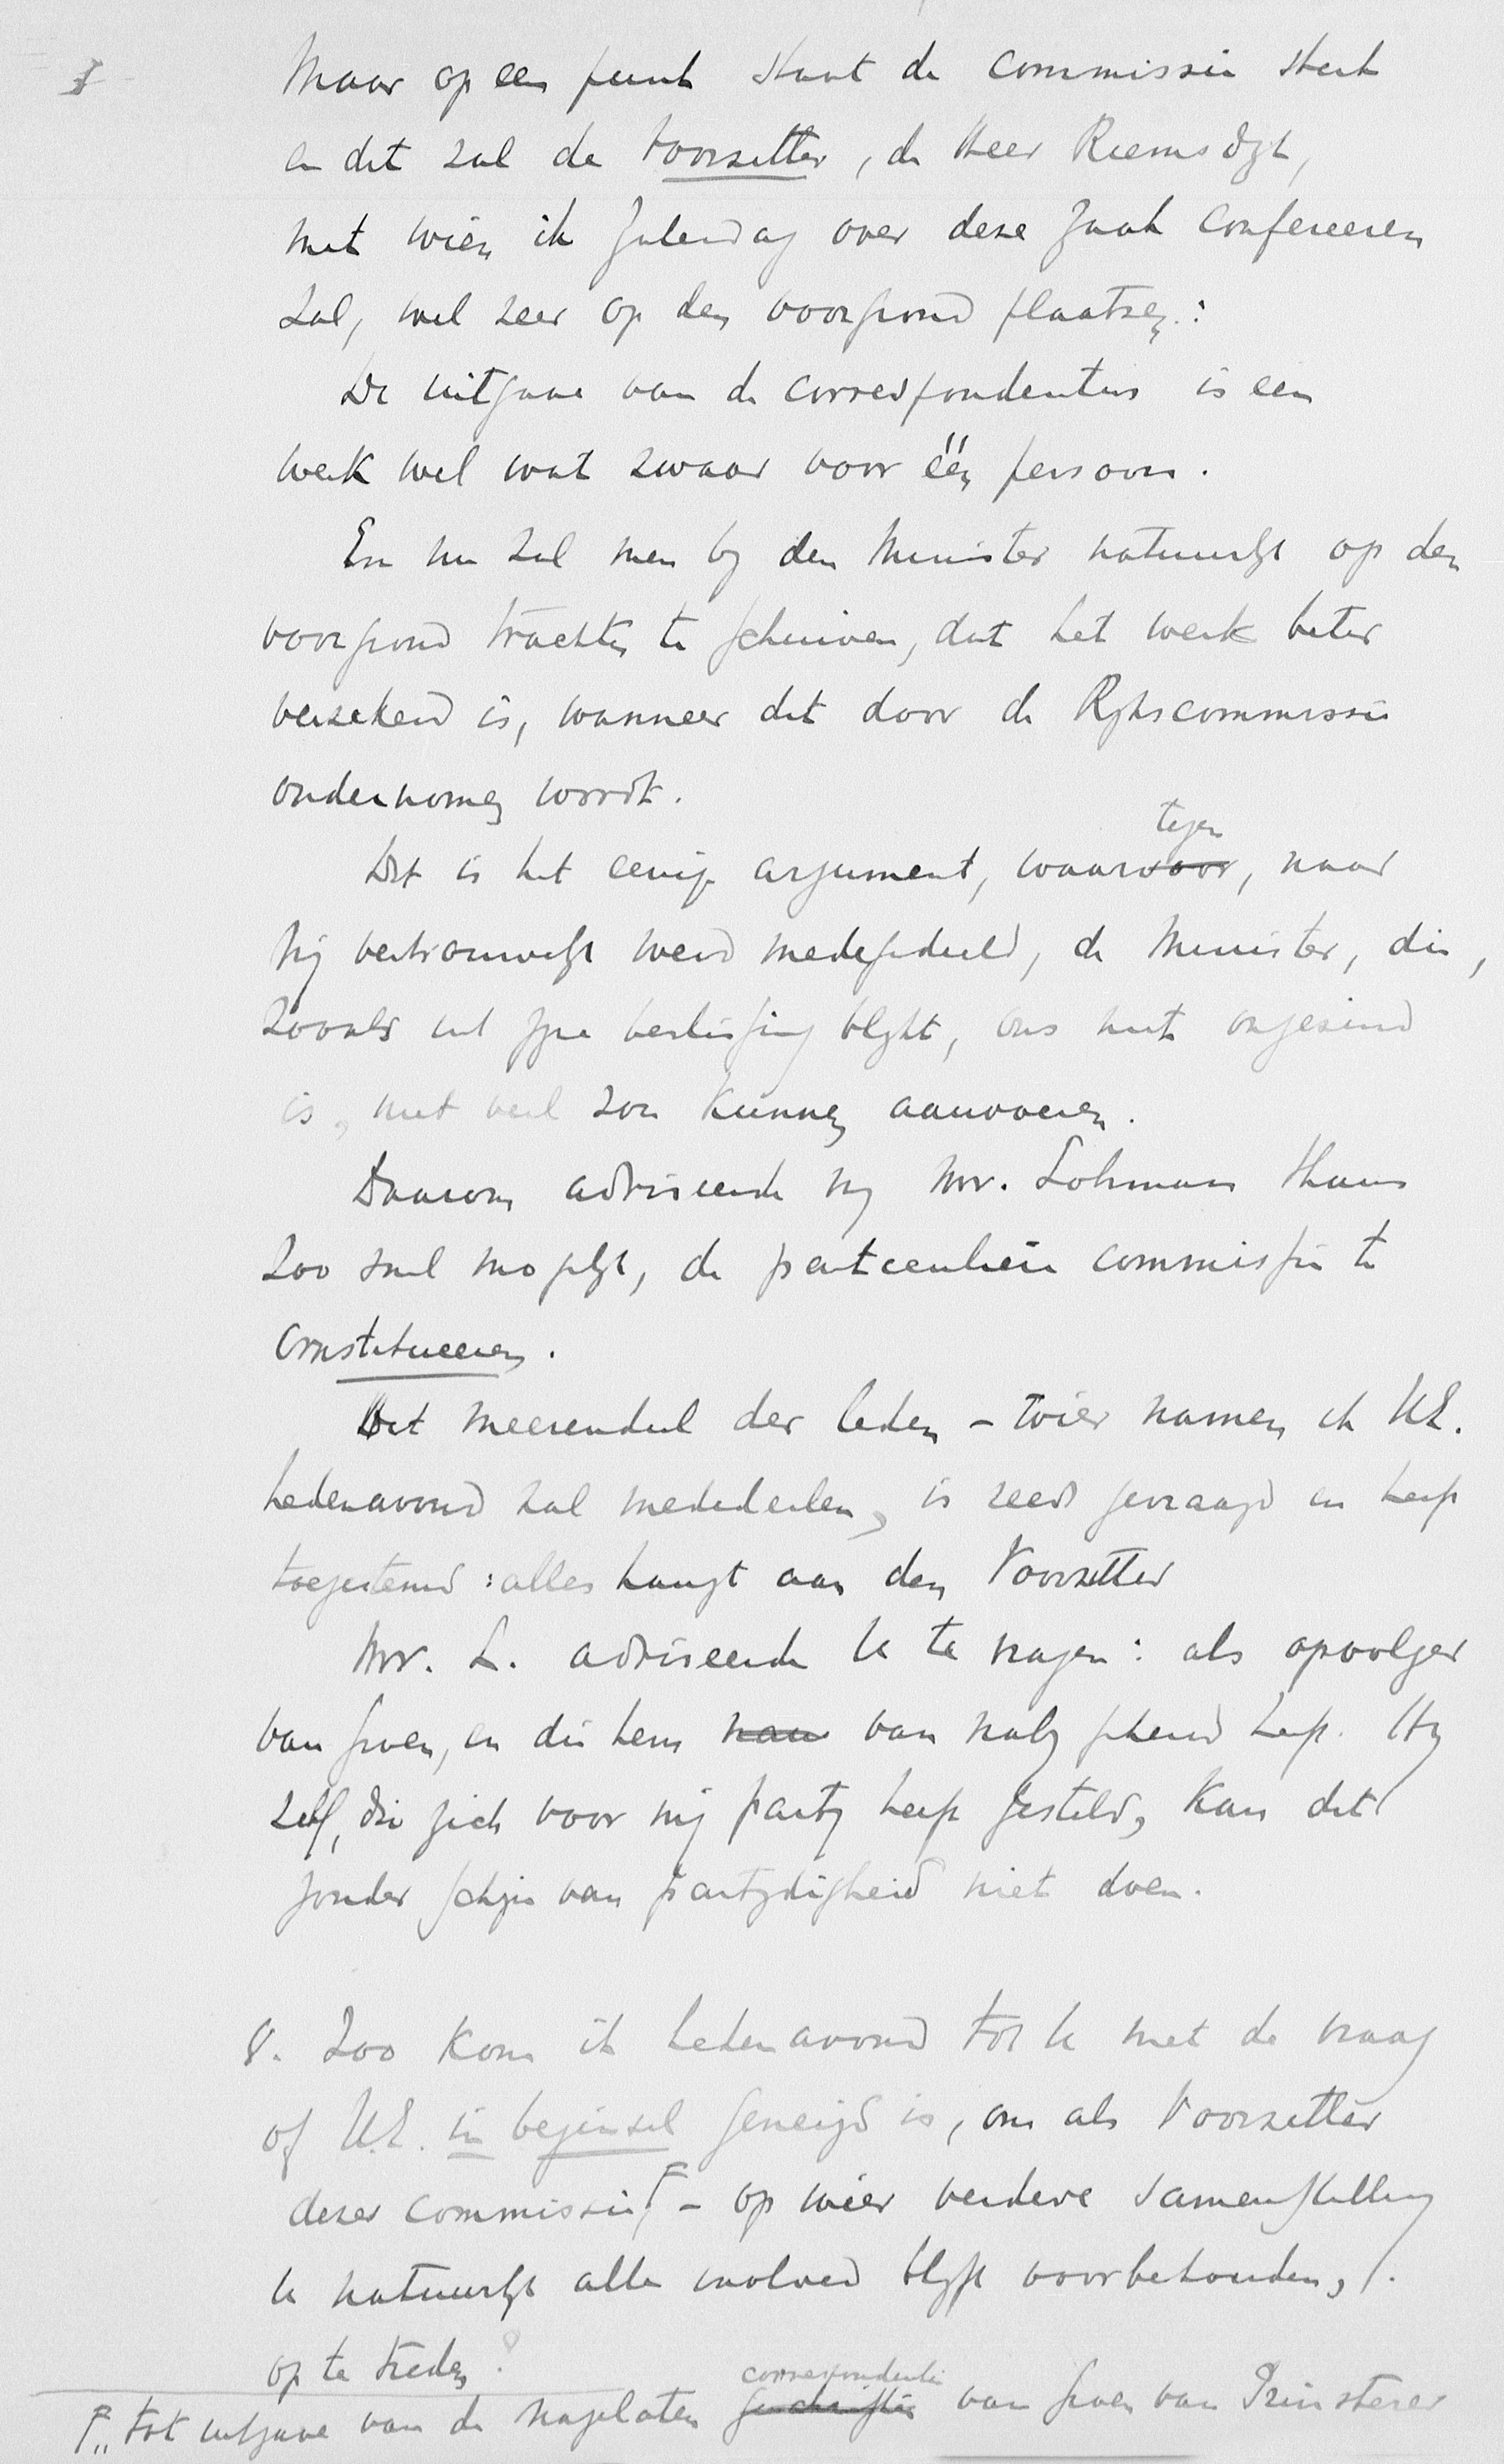 Maar op een punt staat de commissie sterk
en dit zal de Voorzitter, de Heer Riemsdijk,
met wien ik Zaterdag over deze zaak confereeren
zal, wel zeer op den voorgrond plaatsen:
De uitgave van de correspondenties is een
werk wel wat zwaar voor één persoon.
En nu zal men bij den Minister natuurlijk op den
voorgrond trachten te schuiven, dat het werk beter
verzekerd is, wanneer dit door de Rijkscommissie
ondernomen wordt.
Dit is het eenige argument, waarvoor tegen, naar
mij vertrouwelijk werd medegedeeld, de Minister, die,
zooals uit zijne beslissing blijkt, ons niet ongezind
is, niet veel zou kunnen aanvoeren.
Daarom adviseerde mij Mr. Lohman thans
zoo snel mogelijk, de particuliere commissie te
constitueeren.
Het meerendeel der leden – wier namen ik U.E.
hedenavond zal mededeelen, is reeds gevraagd en heeft
toegestemd: alles hangt aan den Voorzitter
Mr. L. adviseerde U te vragen: als opvolger
van Groen, en die hem nau van nabij gekend heeft. Hij
zelf, die zich voor mij partij heeft gesteld, kan dit
zonder schijn van partijdigheid niet doen.
8. Zoo kom ik hedenavond tot U met de vraag
of U.E. in beginsel geneigd is, om als Voorzitter
dezer commissie – op wier verdere samenstelling
U natuurlijk alle invloed blijft voorbehouden,
op te treden?
F „ tot uitgave van de nagelaten geschriften correspondentie van Groen van Prinsterer